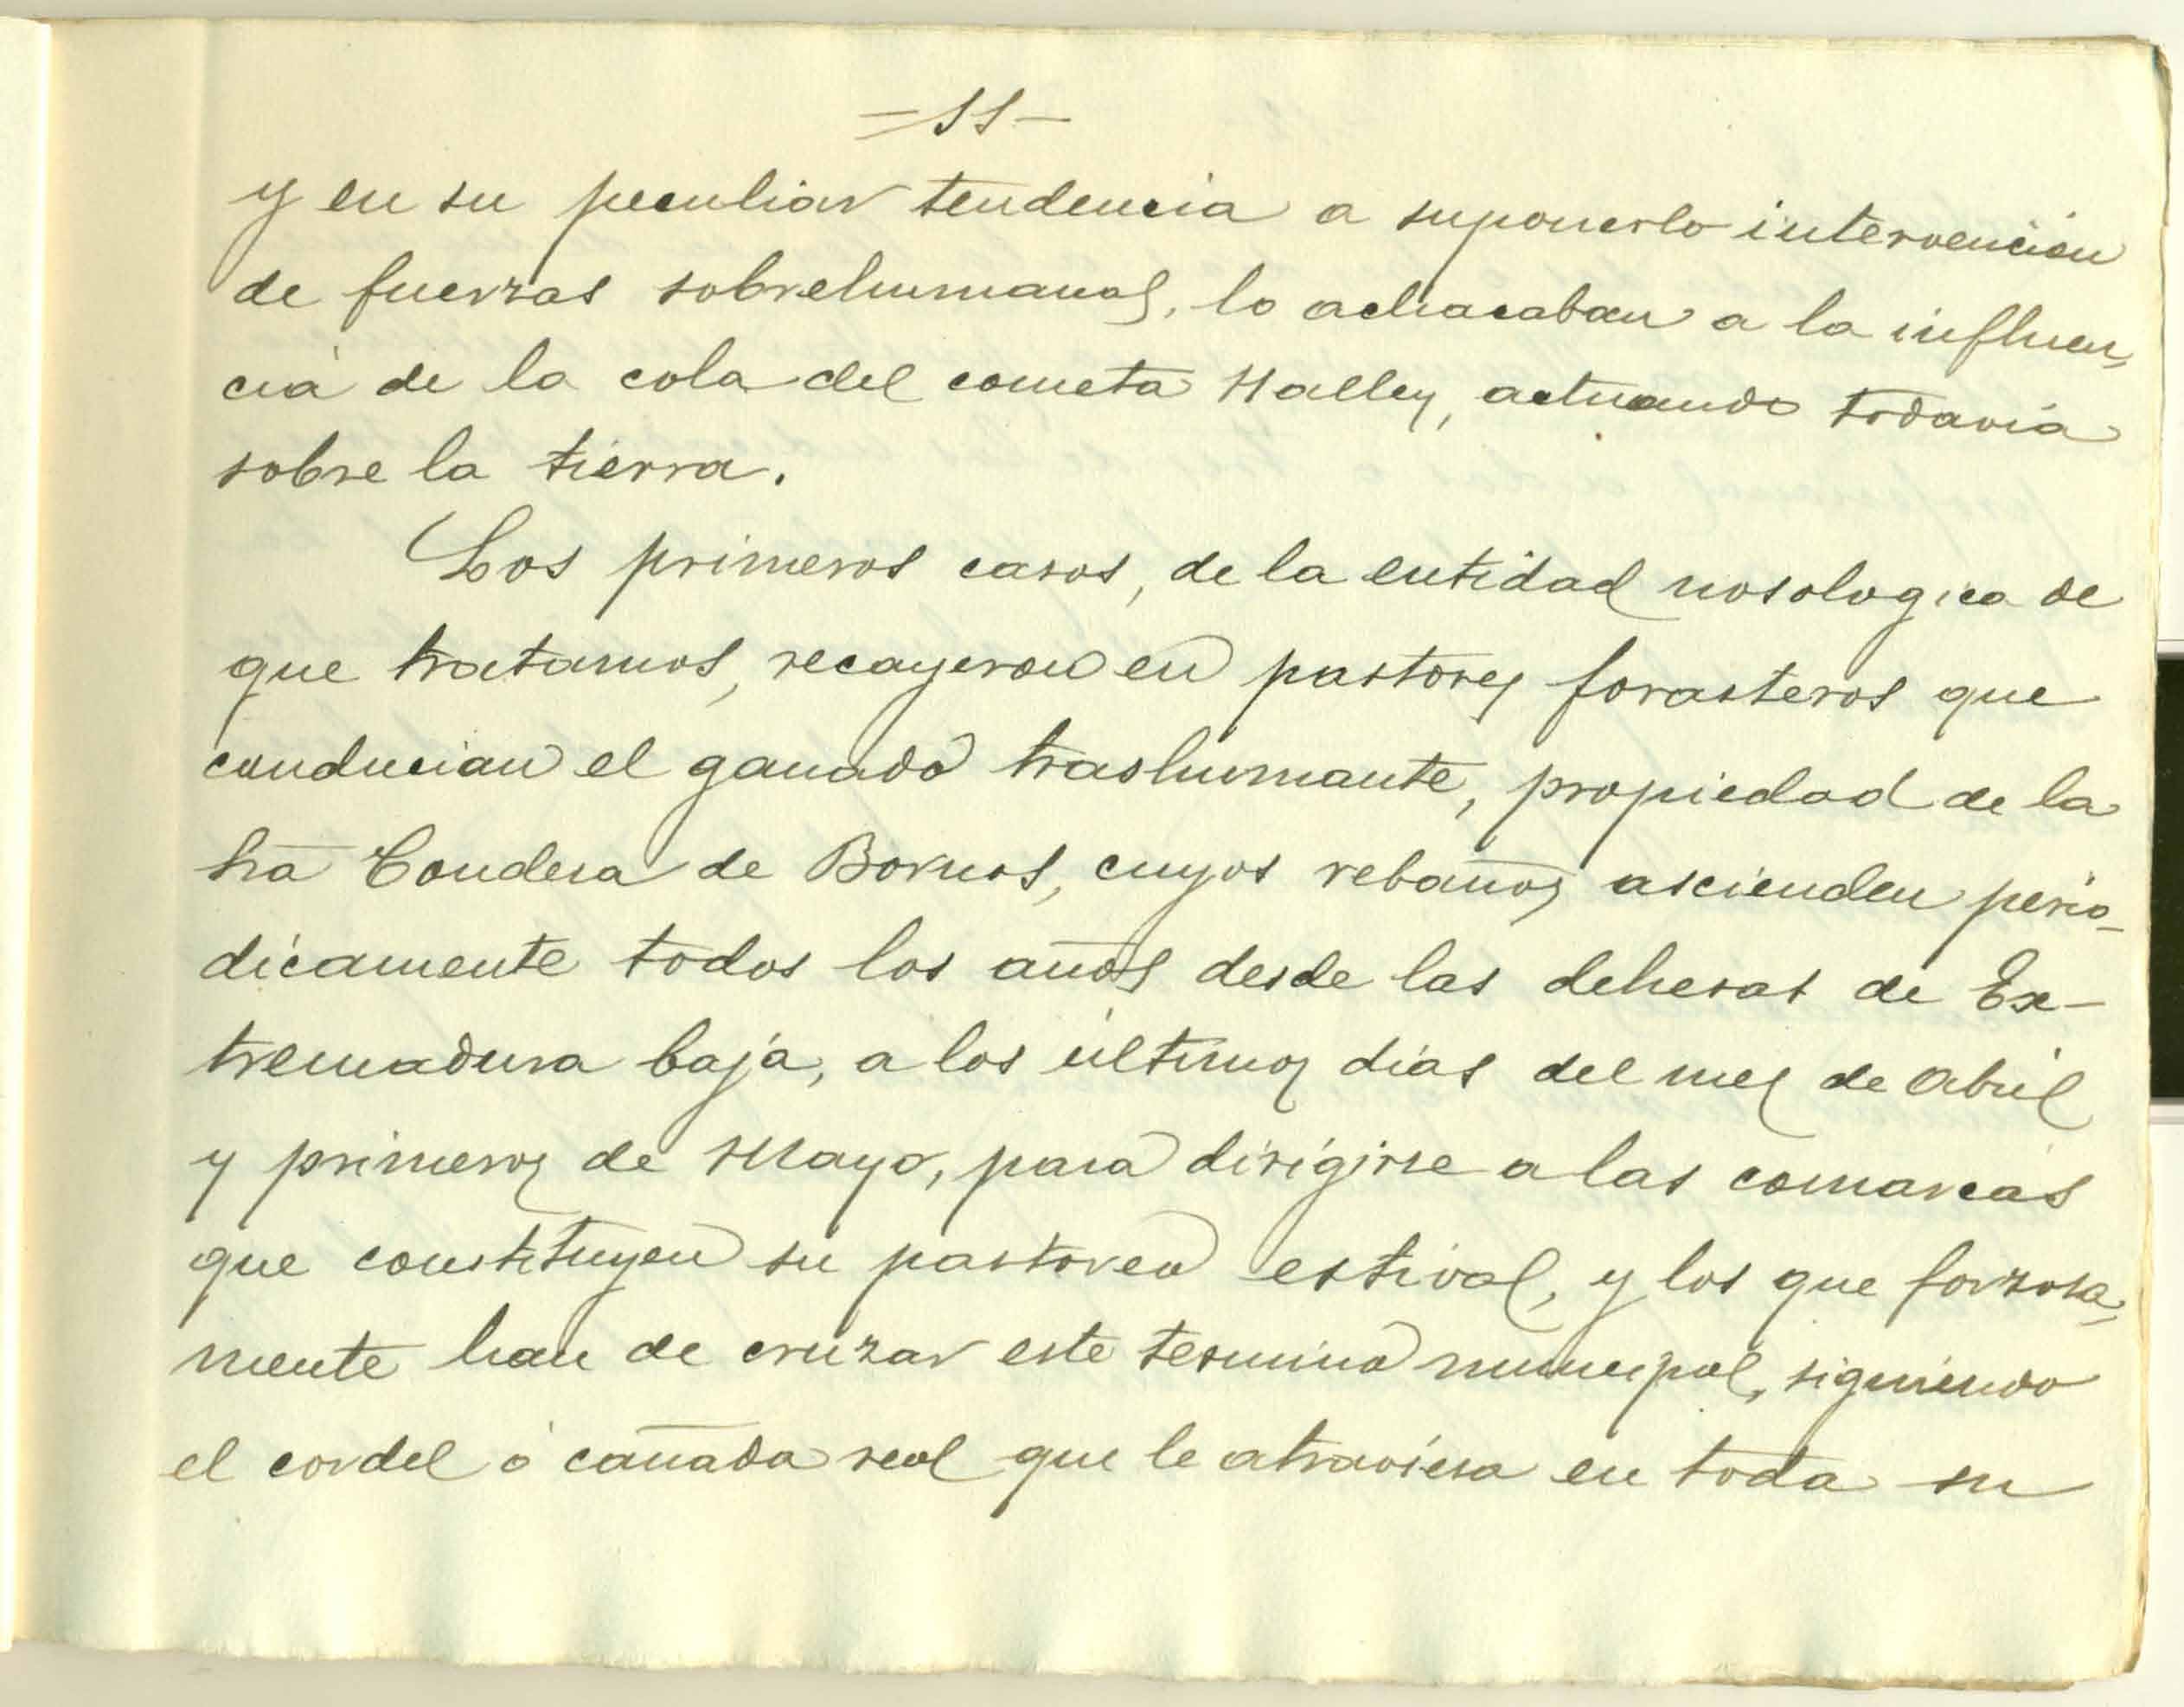 —11—
y en su peculiar tendencia a suponerlo intervención
de fuerzas sobrehumanas, lo achacaban a la influen-
cia de la cola del cometa Halley, actuando todavía
sobre la tierra.
Los primeros casos, de la entidad nosologica de
que tratamos, recayeron en pastores forasteros que
conducian el ganado trashumante, propiedad de la
Sra Condesa de Bornos, cuyos rebaños ascienden perio-
dicamente todos los años desde las dehesas de Ex-
tremadura baja, a los últimos dias del mes de Abril
y primeros de Mayo, para dirigirse a las comarcas
que constituyen su pastoreo estival, y los que forzosa-
mente han de cruzar este termino municipal, siguiendo
el cordel ó cañada real que le atraviesa en toda su